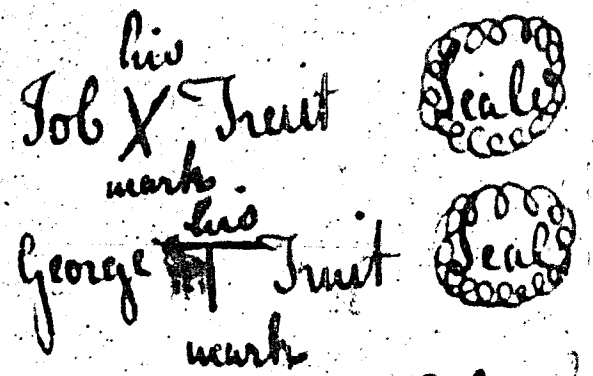 his
Job X Truit Seale
mark
his
George T Truit Seal
mark